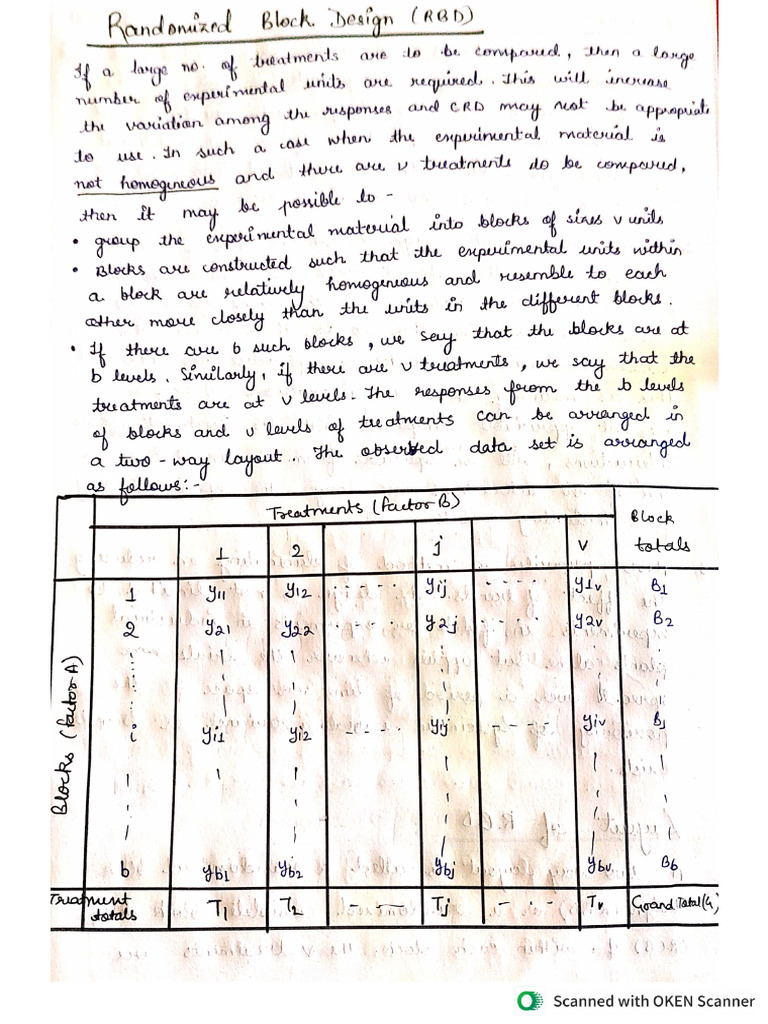 Randomized Block Design (RBD)
If a large no. of treatments are to be compared, then a large
number of experimental units are required. This will increase
the variation among the responses and CRD may not be appropriate
to use. In such a case when the experimental material is
not homogeneous and there are v treatments to be compared,
then it may be possible to -
• group the experimental material into blocks of sizes v units
• Blocks are constructed such that the experimental units within
a block are relatively homogeneous and resemble to each
other more closely than the units in the different blocks.
• If there are b such blocks, we say that the blocks are at
b levels. Similarly, if there are v treatments, we say that the
treatments are at v levels. The responses from the b levels
of blocks and v levels of treatments can be arranged in
a two-way layout. The observed data set is arranged
as follows:-
Treatments (factor B) Block
1 2 j v totals
Blocks (factor A)
1 y11 y12 ----- yij ---- y1v B1
2 y21 y22 ----- y2j ---- y2v B2
i yi1 yi2 ----- yij ---- yiv Bj
b yb1 yb2 ybj ybv Bb
Treatment
totals T1 T2 - - Tj - - Tv Grand Total (G)
Scanned with OKEN Scanner